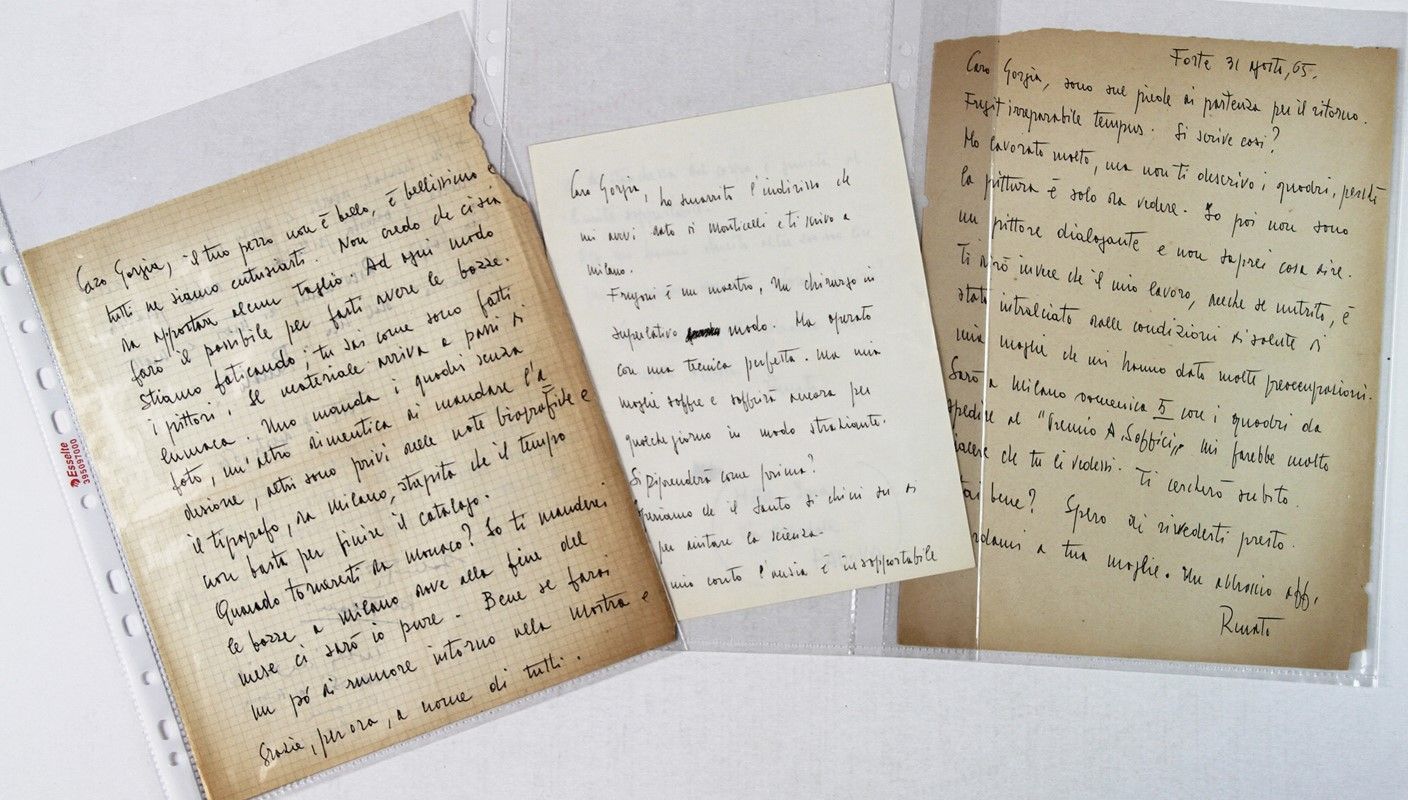 Caro Gorgia, il tuo pezzo non è bello, è bellissimo e
tutti ne siamo entusiasti. Non credo che ci sia
da apportare alcun taglio. Ad ogni modo
farò il possibile per farti avere le bozze.
Stiamo faticando; tu sai come sono fatti
i pittori. Il materiale arriva a passi di
lumaca. Uno manda i quadri senza
foto, un'altro dimentica di mandare l'a
desione, altri sono privi delle note biografiche e
il tipografo, da Milano, strepita che il tempo
non basta per finire il catalogo.
Quando torneresti da Monaco? Io ti manderei
le bozze a Milano dove alla fine del
mese ci sarò io pure. Bene se farai
un pó di rumore intorno alla Mostra e
grazie, per ora, a nome di tutti.
Esselte
395097000
Caro Gorgia, ho smarrito l'indirizzo che
mi avevi dato di Monticelli e ti scrivo a
Milano.
Frugoni è un maestro, un chirurgo in
superlativo modo. Ha operato
con una tecnica perfetta. Ma mia
moglie soffre e soffrirà ancora per
qualche giorno in modo straziante.
Si riprenderà come prima?
Speriamo che il Santo si chini su di
per aiutare la scienza.
mio conto l'ansia è insopportabile
Forte 31 agosto, 65.
Caro Gorgia, sono sul piede di partenza per il ritorno.
Fugit irreparabile tempus. Si scrive così?
Ho lavorato molto, ma non ti descrivo i quadri, perché
la pittura è solo da vedere. Io poi non sono
un pittore dialogante e non saprei cosa dire.
Ti dirò invece che il mio lavoro, anche se nutrito, è
stato intralciato dalle condizioni di salute di
mia moglie che mi hanno dato molte preoccupazioni.
Sarò a Milano domenica 5 con i quadri da
spedire al "Premio A. Soffici„ mi farebbe molto
piacere che tu li vedessi. Ti cercherò subito.
Stai bene? Spero di rivederti presto.
Ricordami a tua moglie. Un abbraccio aff.
Renato